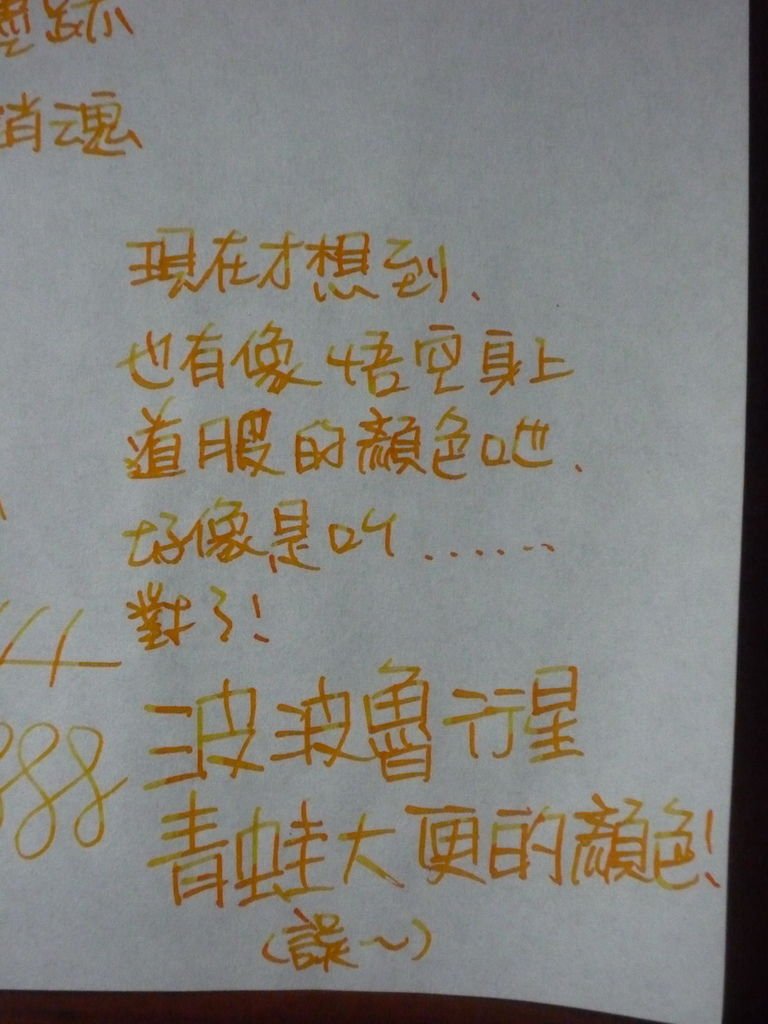 跡
銷魂
現在才想到、
也有像悟空身上
道服的顏色吧、
好像是叫......
對了!
波波魯行星
青蛙大便的顏色!
888
(誤~)